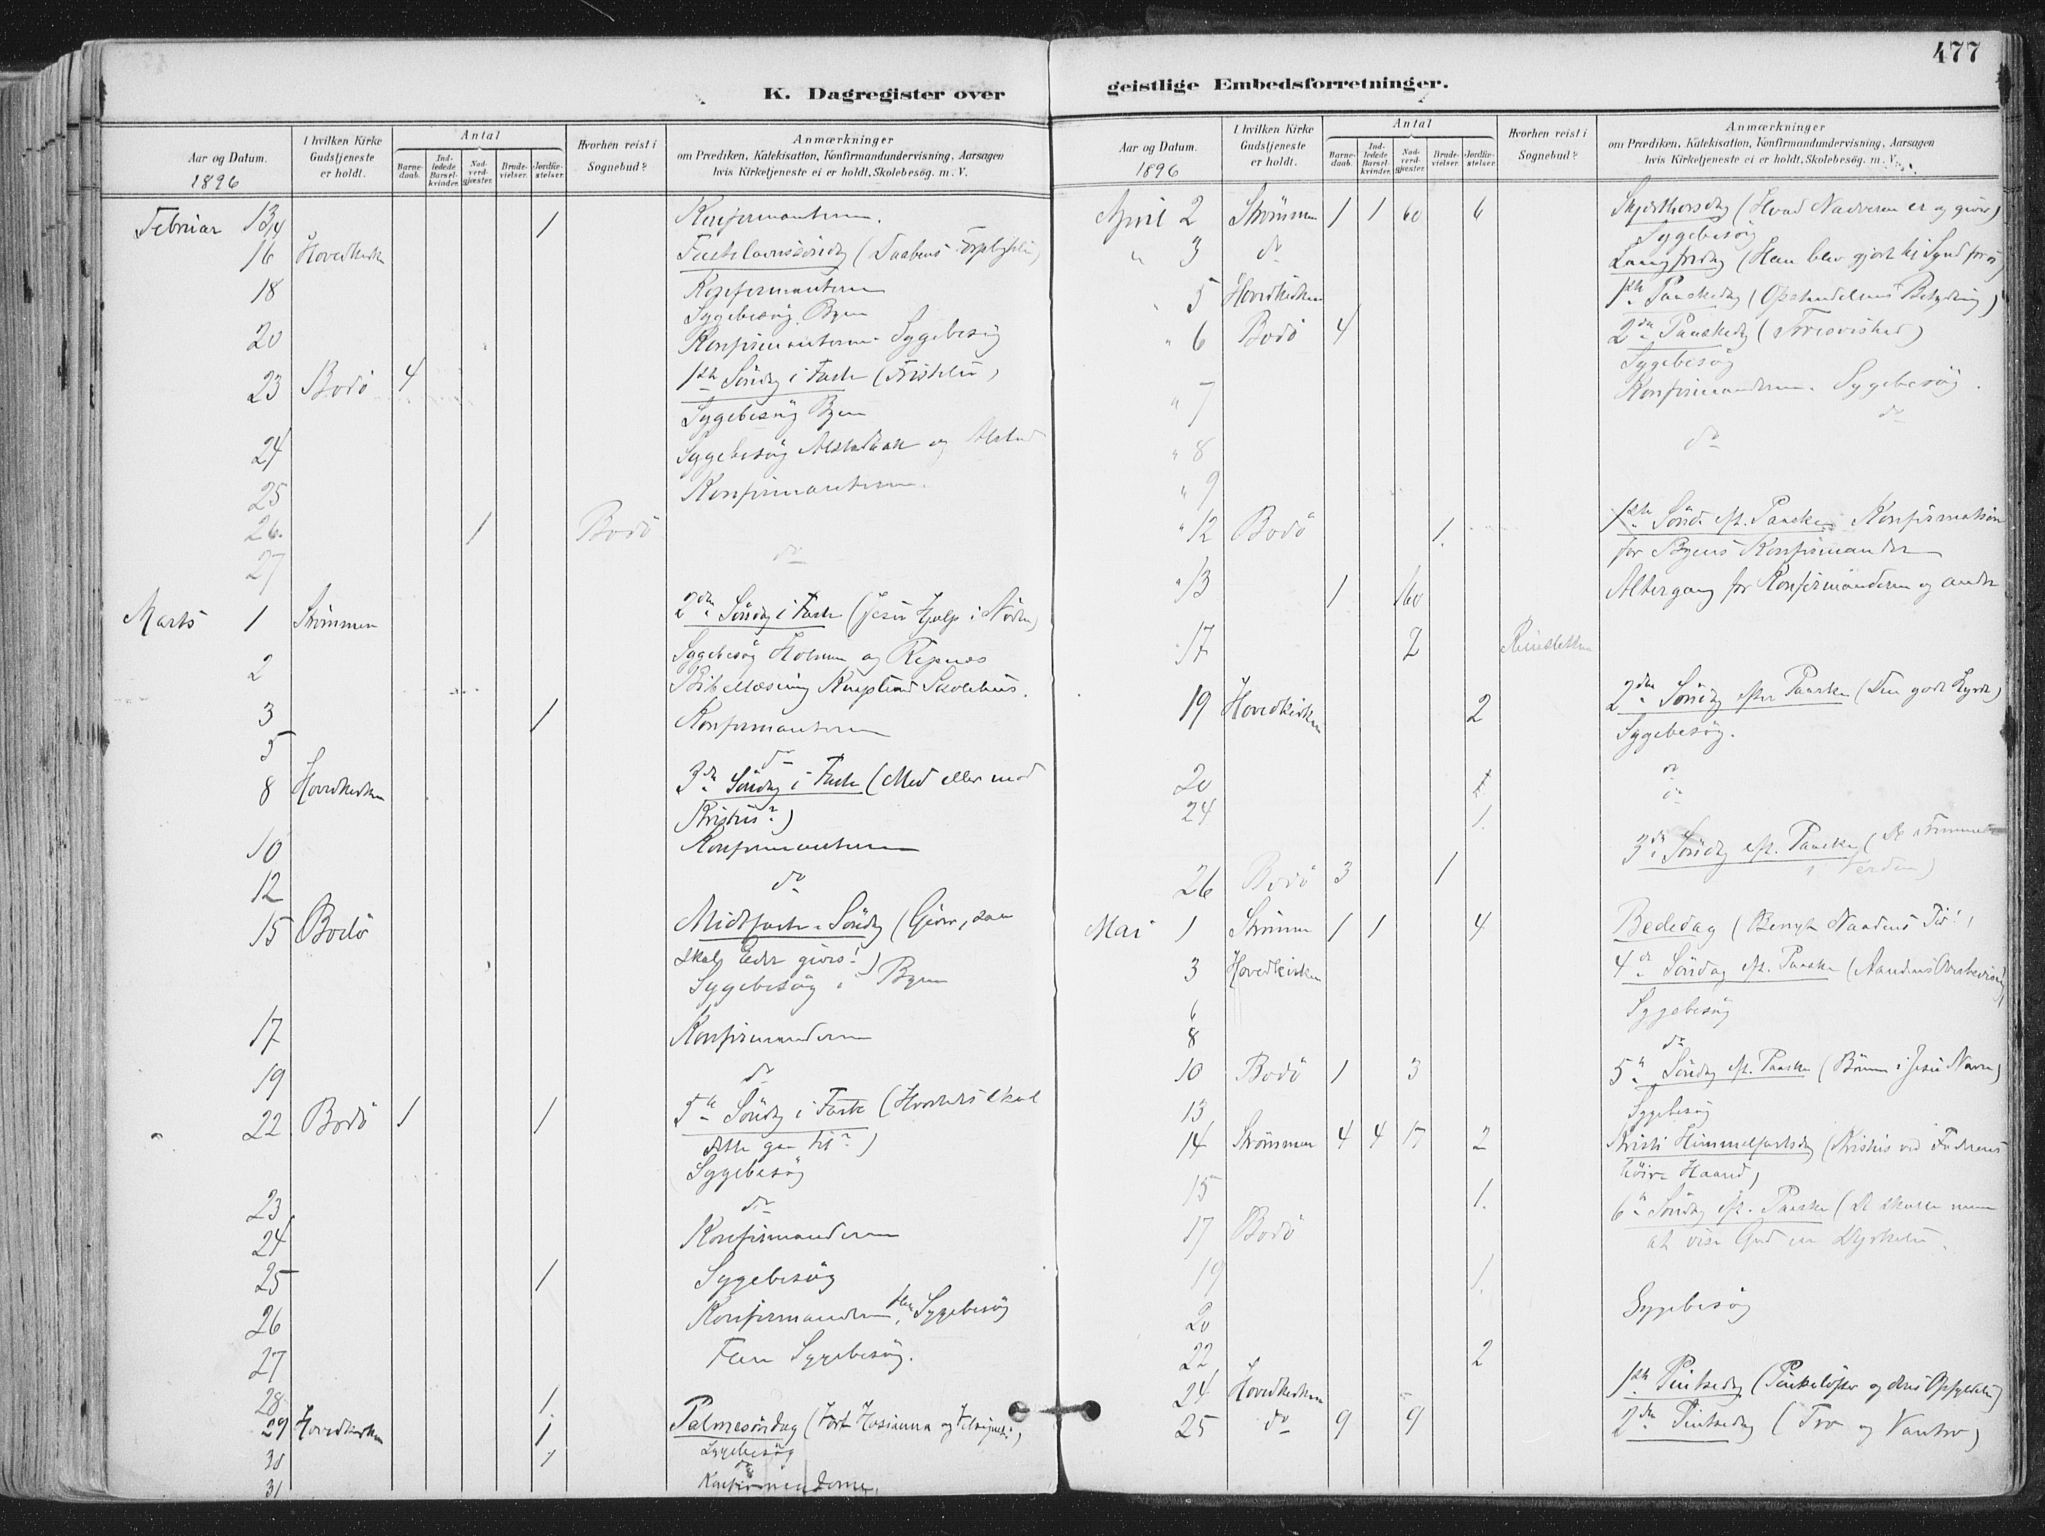 477
K. Dagregister over
geistlige Embedsforretninger.
Aar og Datum.
1896
I hvilken Kirke Gudstjeneste er holdt.
Antal
Barnedaab.
Indledede Barselkvinder.
Nadverdgjæster.
Brudevielser.
Jordfæstelser.
Hvorhen reist i Sognebud?
Anmærkninger
om Prædiken, Katekisation, Konfirmandundervisning, Aarsagen
hvis Kirketjeneste ei er holdt, Skolebesøg. m. V.
Februar 13/14 1 Konfirmanterne.
16 Hovedkirk Fastelavnssöndag (Daabens
18 Konfirmanterne
Sygebesög Byen
20 Konfirmanterne Sygebesög
23 Bodö 4 1ste Söndag i Faste (Fristelse)
Sygebesög Byen
24 Sygebesög og Alstad
25 Konfirmanterne.
26. 1 Bodö
27 do
Marts 1 Strömmen 2den Söndag i Faste (Jesu Hjælp i Nöden)
2 Sygebesög og
Bibellæsning Skolehus.
3 1 Konfirmanterne
5 do
8 Hovedkirken 3die Söndag i Faste (Med eller mod
Kristus?)
10 Konfirmanterne
12 do
15 Bodö Midtfaste Söndag (Giver, saa
skal Eder gives!)
Sygebesög i Byen
17 Konfirmanderne
19 do
22 Bodö 1 1 5te Söndag i Faste (Hvorledes skal
dette gaa til?)
Sygebesög
23 do
24 Konfirmanderne
25 1 Sygebesög
26 Konfirmanderne, Sygebesög
27 Flere Sygebesög.
28 1.
29 Hovedkirken 1 Palmesöndag (Hosianna og
Sygebesög
30 1 do
31 Konfirmanderne.
Aar og Datum.
1896
I hvilken Kirke Gudstjeneste er holdt.
Antal
Barnedaab.
Indledede Barselkvinder.
Nadverdgjæster.
Brudevielser.
Jordfæstelser.
Hvorhen reist i Sognebud?
Anmærkninger
om Prædiken, Katekisation, Konfirmandundervisning, Aarsagen
hvis Kirketjeneste ei er holdt, Skolebesøg. m. V.
April 2 Strömmen 1 1 60 6 Skjærthorsdag (Hvad Nadveren er og giver)
Sygebesög
" 3 do Langfredag (Han blev gjort til Synd for os)
" 5 Hovedkirken 1ste Paaskedag (Opstandelsens Betydning)
" 6 Bodö 4 2den Paaskedag
Sygebesög
" 7 Konfirmanderne. Sygebesög.
" 8 do do
" 9
" 12 Bodö 1. 1ste Sönd. eft. Paaske Konfirmation
for Byens Konfirmander
" 13 1 160 Altergang for Konfirmanderne og andre
" 17 2
19 Hovedkirken 2 2den Söndag efter Paaske (Den gode Hyrde)
Sygebesög.
20 1 do
24 1. do
26 Bodö 3 1 3die Söndag eft. Paaske
i Verden)
Mai 1 Strömmen 1 1 4 Bededag (Benyt Naadens Tid!)
3 Hovedkirken 4de Söndag eft. Paaske (Aandens Overbevisn
6 Sygebesög
8 do
10 Bodö 1 3 5te Söndag eft. Paaske (Bönnen i Jesu Navn)
13 Sygebesög
14 Strömmen 4 4 17 2 Kristi Himmelfartsdag (Kristus ved Faderens
höire Haand)
15 1.
17 Bodö 6te Söndag eft. Paaske (De skulle mene
at vise Gud en Dyrkelse.
19 1.
20 Sygebesög
22 2
24 Hovedkirken 1ste Pintsedag (Pintselöftet og dets Opfyldelse)
25 do 9 9 2den Pintsedag (Tro og Vantro)